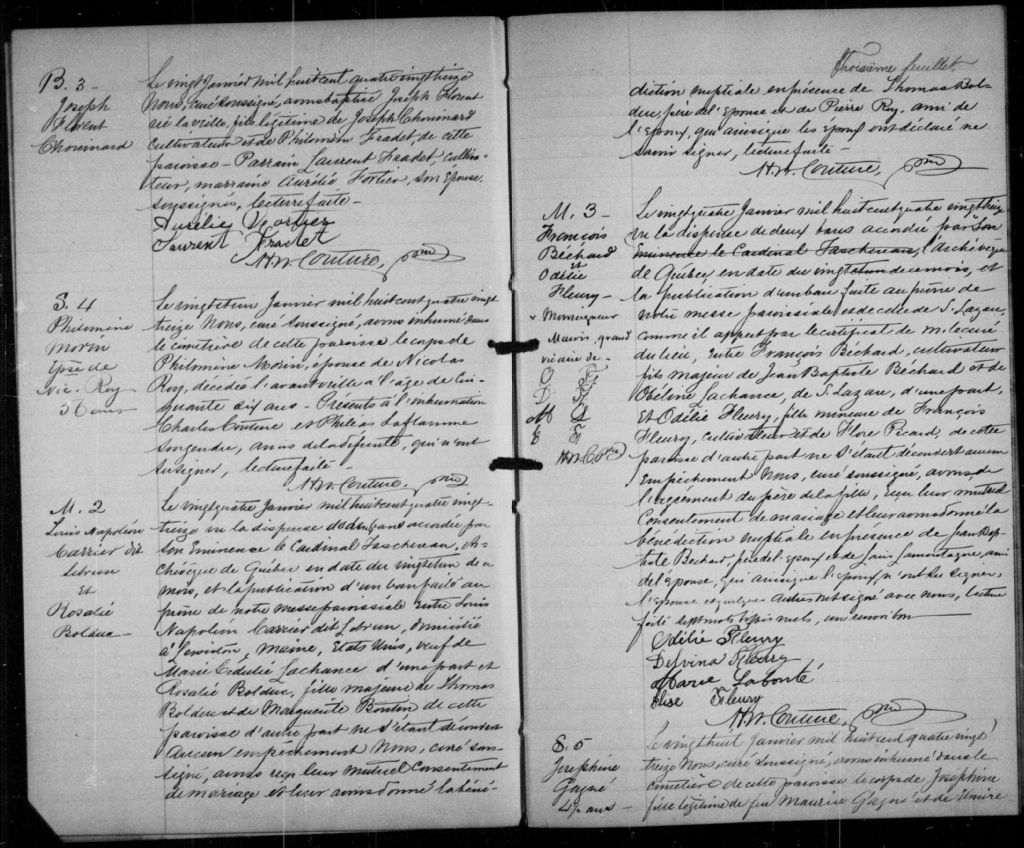 B. 3 -
Joseph
Florent
Chouinard
Le vingt Janvier mil huit cent quatre vingt treize
Nous, curé soussigné, avons baptisé Joseph Florent
né la veille, fils légitime de Joseph Chouinard
cultivateur et de Philomène Fradet, de cette
paroisse - Parrain Laurent Fradet, cultiva-
teur, marraine Aurélie Fortier, son épouse,
soussignés, lecture faite -
Aurélie Fortier
Laurent Fradet
H.W. Couture, ptre
S. 4
Philomène
Morin
épse de
Nic. Roy
56 ans
Le vingt et un Janvier mil huit cent quatre vingt
treize Nous, curé soussigné, avons inhumé dans
le cimetière de cette paroisse le corps de
Philomène Morin, épouse de Nicolas
Roy, décédée l'avant veille à l'age de cin-
quante six ans - Présents à l'inhumation
Charles Couture et Philéas Laflamme
son gendre, amis de la defunte, qui n'ont
su signer, lecture faite -
H.W. Couture, ptre
M. 2
Louis Napoléon
Carrier dit
Lebrun
et
Rosalie
Bolduc -
Le vingt quatre Janvier mil huit cent quatre vingt
treize vu la dispense de deux bans accordée par
Son Eminence le Cardinal Taschereau, Ar-
chevêque de Québec en date du vingt et un de ce
mois, et la publication d'un ban faite au
prône de notre messe paroissiale entre Louis
Napoléon Carrier dit Lebrun, domicilié
à Lewiston, Maine, Etats Unis, veuf de
Marie Lachance d'une part et
Rosalie Bolduc, fille majeure de Thomas
Bolduc et de Marguerite Boutin de cette
paroisse d'autre part ne s'étant découvert
Aucun empêchement Nous, curé sous-
signé, avons reçu leur mutuel consentement
de mariage et leur avons donné la béné-
Troisième feuillet
diction nuptiale en présence de Thomas Bol-
duc, père de l'épouse et de Pierre Roy, ami de
l'époux, qui ainsi que les époux ont déclaré ne
savoir signer, lecture faite -
H.W. Couture, ptre
M. 3 -
François
Béchard
et
Odélie
Fleury -
x Monseigneur
Marois, grand
vicaire de -
O F
D F
M L
E F
H.W.C. ptre
Le vingt quatre Janvier mil huit cent quatre vingt treize
vu la dispense de deux bans accordée par Son
Eminence le Cardinal Taschereau, l'archevêque
de Québec, en date du vingt et un de ce mois, et
la publication d'un ban faite au prône de
notre messe paroissiale et de celle de S. Lazare,
comme il appert par le certificat de m. le curé
du lieu, Entre François Béchard, cultivateur
fils majeur de Jean Baptiste Béchard et de
Obéline Lachance, de S. Lazare, d'une part,
Et Odélie Fleury, fille mineure de François
Fleury, cultivateur et de Flore Picard, de cette
paroisse d'autre part ne s'étant découvert aucun
Empêchement Nous, curé soussigné, avons, de
l'agrément du père de la fille, reçu leur mutuel
Consentement de mariage et leur avons donné la
bénédiction nuptiale en présence de Jean Bap-
tiste Béchard, père de l'époux et de Louis Lamontagne, ami
de l'épouse, qui ainsi que l'époux n'ont su signer,
l'épouse et quelques autres ont signé avec nous, lecture
faite sept mots rayés nuls, un renvoi bon
Odélie Fleury
Delvina Fleury
Marie Labonté
Elise Fleury
H.W. Couture, ptre
S. 5
Josephine
Gagné
4½ ans -
Le vingt huit Janvier mil huit cent quatre vingt
treize Nous, curé soussigné, avons inhumé dans le
cimetière de cette paroisse le corps de Josephine
fille légitime de feu Maurice Gagné et de